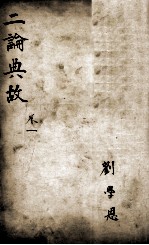 二論典故
卷一
劉學恩